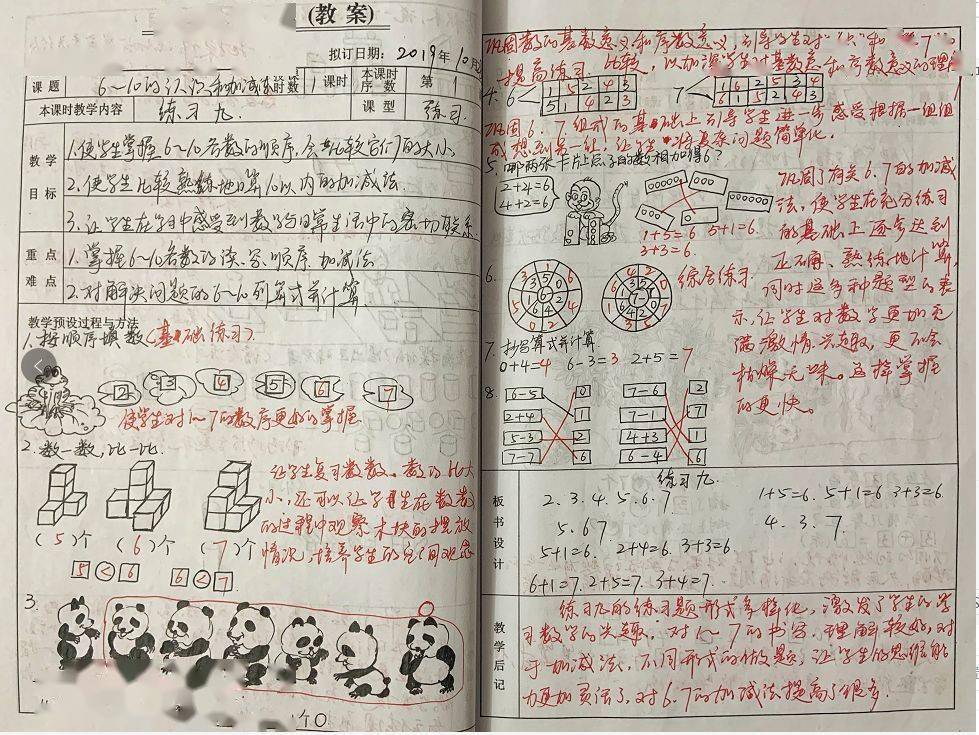 (教案)
拟订日期：2019年10月
课题 6～10的认识和加减法 课时数 1课时 本课时序数 第1
本课时教学内容 练习九. 课型 练习.
教学目标
1.使学生掌握6～10各数的顺序,会比较它们的大小.
2.使学生比较熟练地口算10以内的加减法.
3.让学生在学习中感受到数学与日常生活中的密切联系.
重点难点
1.掌握6～10各数的读、写、顺序 加减法
2.对解决问题的6～10列算式并计算.
教学预设过程与方法
1.按顺序填数(基础练习).
2 3 4 5 6 7
使学生对1～7的数序更好的掌握
2.数一数,比一比.
让学生复习数数、数的比大
小,还可以让学生在数数
的过程中观察木块的摆放
情况,培养学生的空间观念
(5)个 (6)个 (7)个
5<6 6<7
3.
个0
巩固数的基数意义和序数意义,引导学生对
提高练习. 比较,以加深学生对基数意和序数意义的理解
4. 6 1 5 2 4 3
5 1 4 2 3
7 1 6 2 5 3 4
6 1 5 2 4 3
巩固6.7组成的基础上引导学生进一步感受根据一组组
成想到另一组,让 将复杂问题简单化.
5.哪两张卡片上点子的数相加得6?
2+4=6
4+2=6
1+5=6 5+1=6.
3+3=6.
巩固了有关6.7的加减
法,使学生在充分练习
的基础上逐步达到
正确、熟练地计算,
同时这多种题型的表
示,让学生对数学更加充
满激情兴趣,更不会
枯燥无味。这样掌握
的更快。
6. 综合练习
7.抄写算式并计算.
0+4=4 6-3=3 2+5=7
8. 6-5 0 7-6 2
2+4 1 7-1 7
5-3 2 4+3 1
7-7 6 6-4 6
板书设计
练习九.
2. 3. 4. 5. 6. 7 1+5=6. 5+1=6 3+3=6
5. 6 7 4. 3. 7.
5+1=6. 2+4=6. 3+3=6
6+1=7. 2+5=7. 3+4=7.
教学后记
练习九的练习题形式多样化,激发了学生的学
习数学的兴趣.对1～7的书写、理解较好,对
于加减法,不同形式的做题,让学生的思维能
力更加灵活了,对6.7的加减法提高了很多.